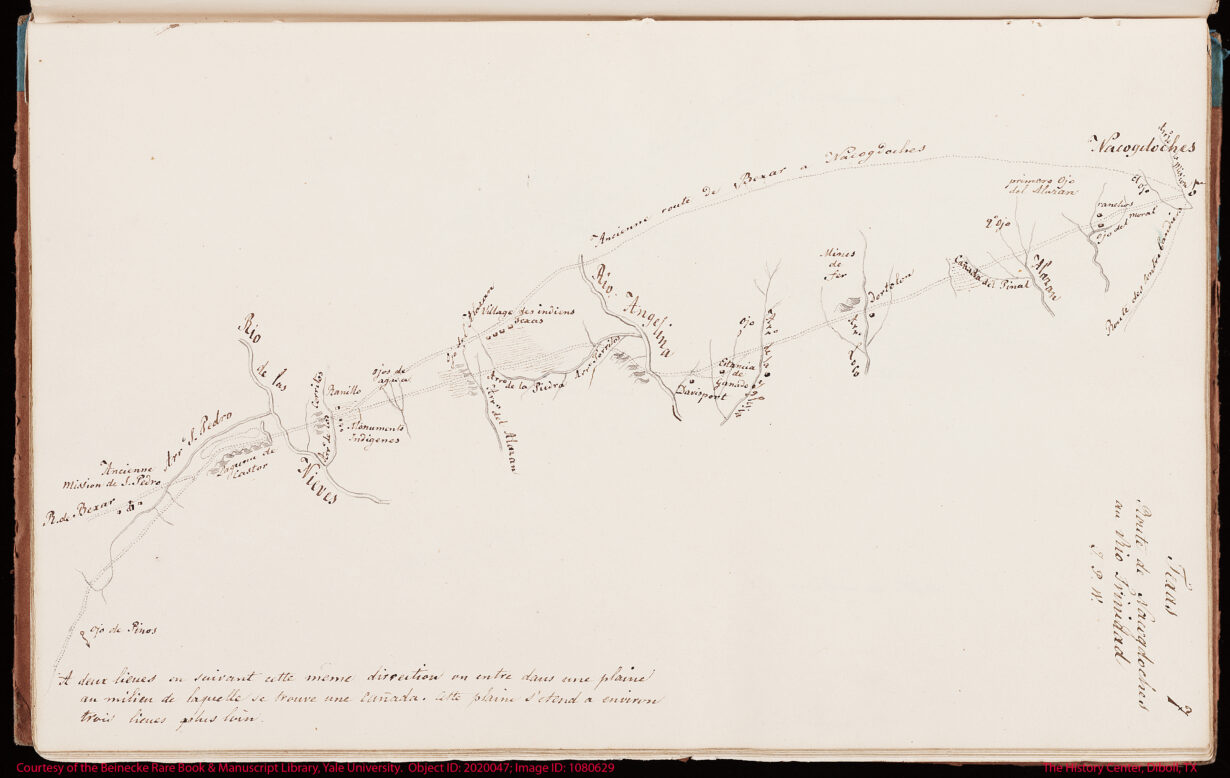 Nacogdoches
Ancienne route de Bexar a Nacogdoches
primero Ojo
del Alazan
el Ojo
2º Ojo
ranchos
Ojo del moral
Alazan
Cañada del Pinal
Mines
de
Fer
Dortolon
Arr. Loco
Rio Angelina
Ojo
Estancia
de
Ganado
Davisport
Village des indiens
Texas
Arrº de la Piedra
Arrº Cerritos
Arrº del Alazan
Rio
de las
Nieves
Cerritos
Ranillo
Ojos de
agua
Monuments
Indigenes
Arrº S. Pedro
Laguna de
Castor
Ancienne
Mission de S. Pedro
R. de Bexar
Ojo de Pinos
A deux lieues en suivant cette même direction on entre dans une plaine
au milieu de laquelle se trouve une Cañada. Cette plaine s'etend a environ
trois lieues plus loin.
7
Texas
Route de Nacogdoches
au Rio Trinidad
Courtesy of the Beinecke Rare Book & Manuscript Library, Yale University. Object ID: 2020047; Image ID: 1080629
The History Center, Diboll, TX